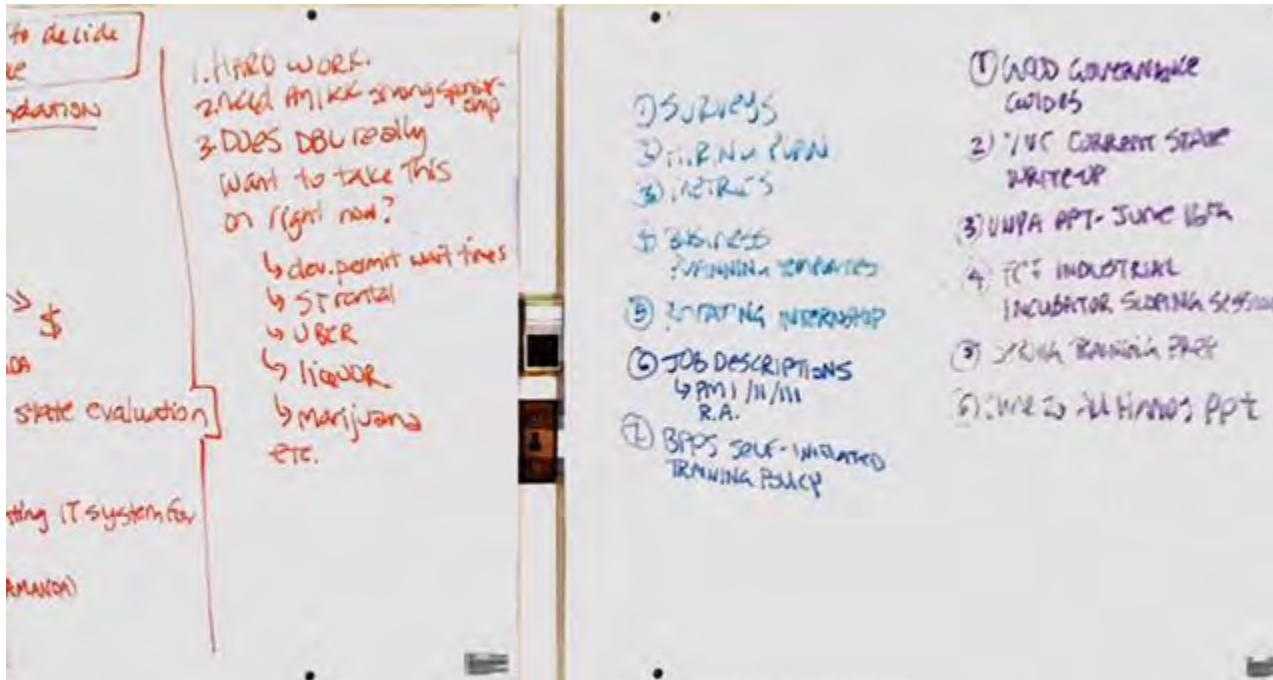 to decide
ndation
$
state evaluation
ting IT system for
AMANDA)
1. HARD WORK.
2. Need strong sponsor-
3. DOES DBL really
want to take this
on right now?
↳ dev. permit wait times
↳ ST rental
↳ UBER
↳ liquor
↳ marijuana
etc.
1) SURVEYS
2) HIRING PLAN
3) METRICS
4) BUSINESS
PLANNING TEMPLATES
5) ROTATING INTERNSHIP
6) JOB DESCRIPTIONS
↳ PM I/II/III
R.A.
7) BPPS SELF-INITIATED
TRAINING POLICY
1) GOOD GOVERNANCE
GUIDES
2) CURRENT STATE
WRITE-UP
3) PPT- JUNE 16th
4) INDUSTRIAL
INCUBATOR SCOPING SESSION
5) TRAINING
6) Hands ppt